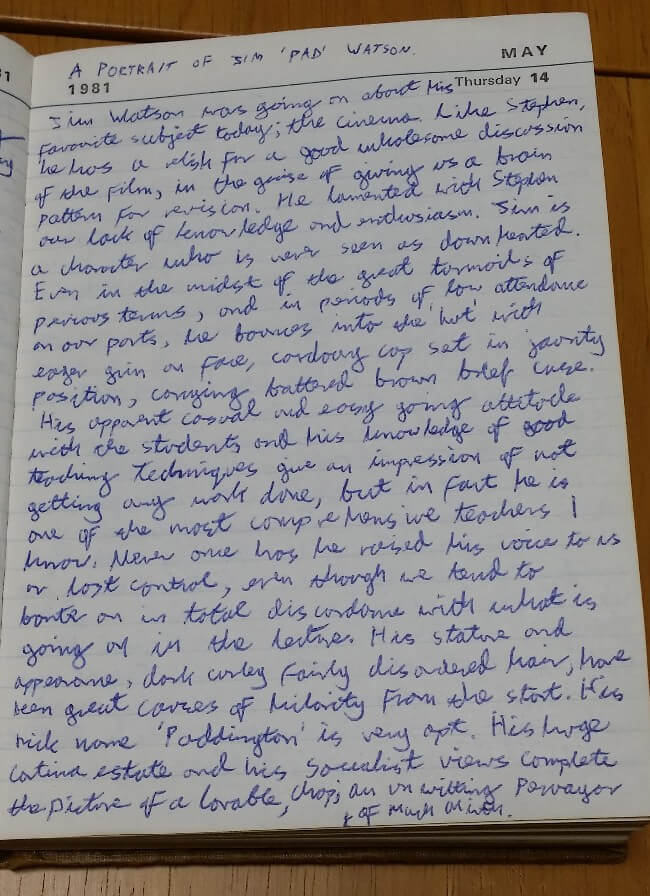 A PORTRAIT OF JIM 'PAD' WATSON.
MAY
1981
Thursday 14
Jim Watson was going on about his
favourite subject today; the cinema. Like Stephen,
he has a relish for a good wholesome discussion
of the film, in the guise of giving us a brain
pattern for revision. He lamented with Stephen
our lack of knowledge and enthusiasm. Jim is
a character who is never seen as down hearted.
Even in the midst of the great tormoils of
previous terms, and in periods of low attendance
on our parts, he bounces into the 'hut' with
eager grin on face, corduroy cap set in jaunty
position, carrying battered brown brief case.
His apparent casual and easy going attitude
with the students and his knowledge of good
teaching techniques give an impression of not
getting any work done, but in fact he is
one of the most comprehensive teachers I
know. Never one has he raised his voice to us
or lost control, even though we tend to
on in total discordance with what is
going on in the lecture. His stature and
appearance, dark curley fairly disordered hair, have
been great causes of hilarity from the start. His
nick name 'Paddington' is very apt. His huge
Cortina estate and his Socialist views complete
the picture of a lovable chap; an un witting Pervayor
of much mirth.